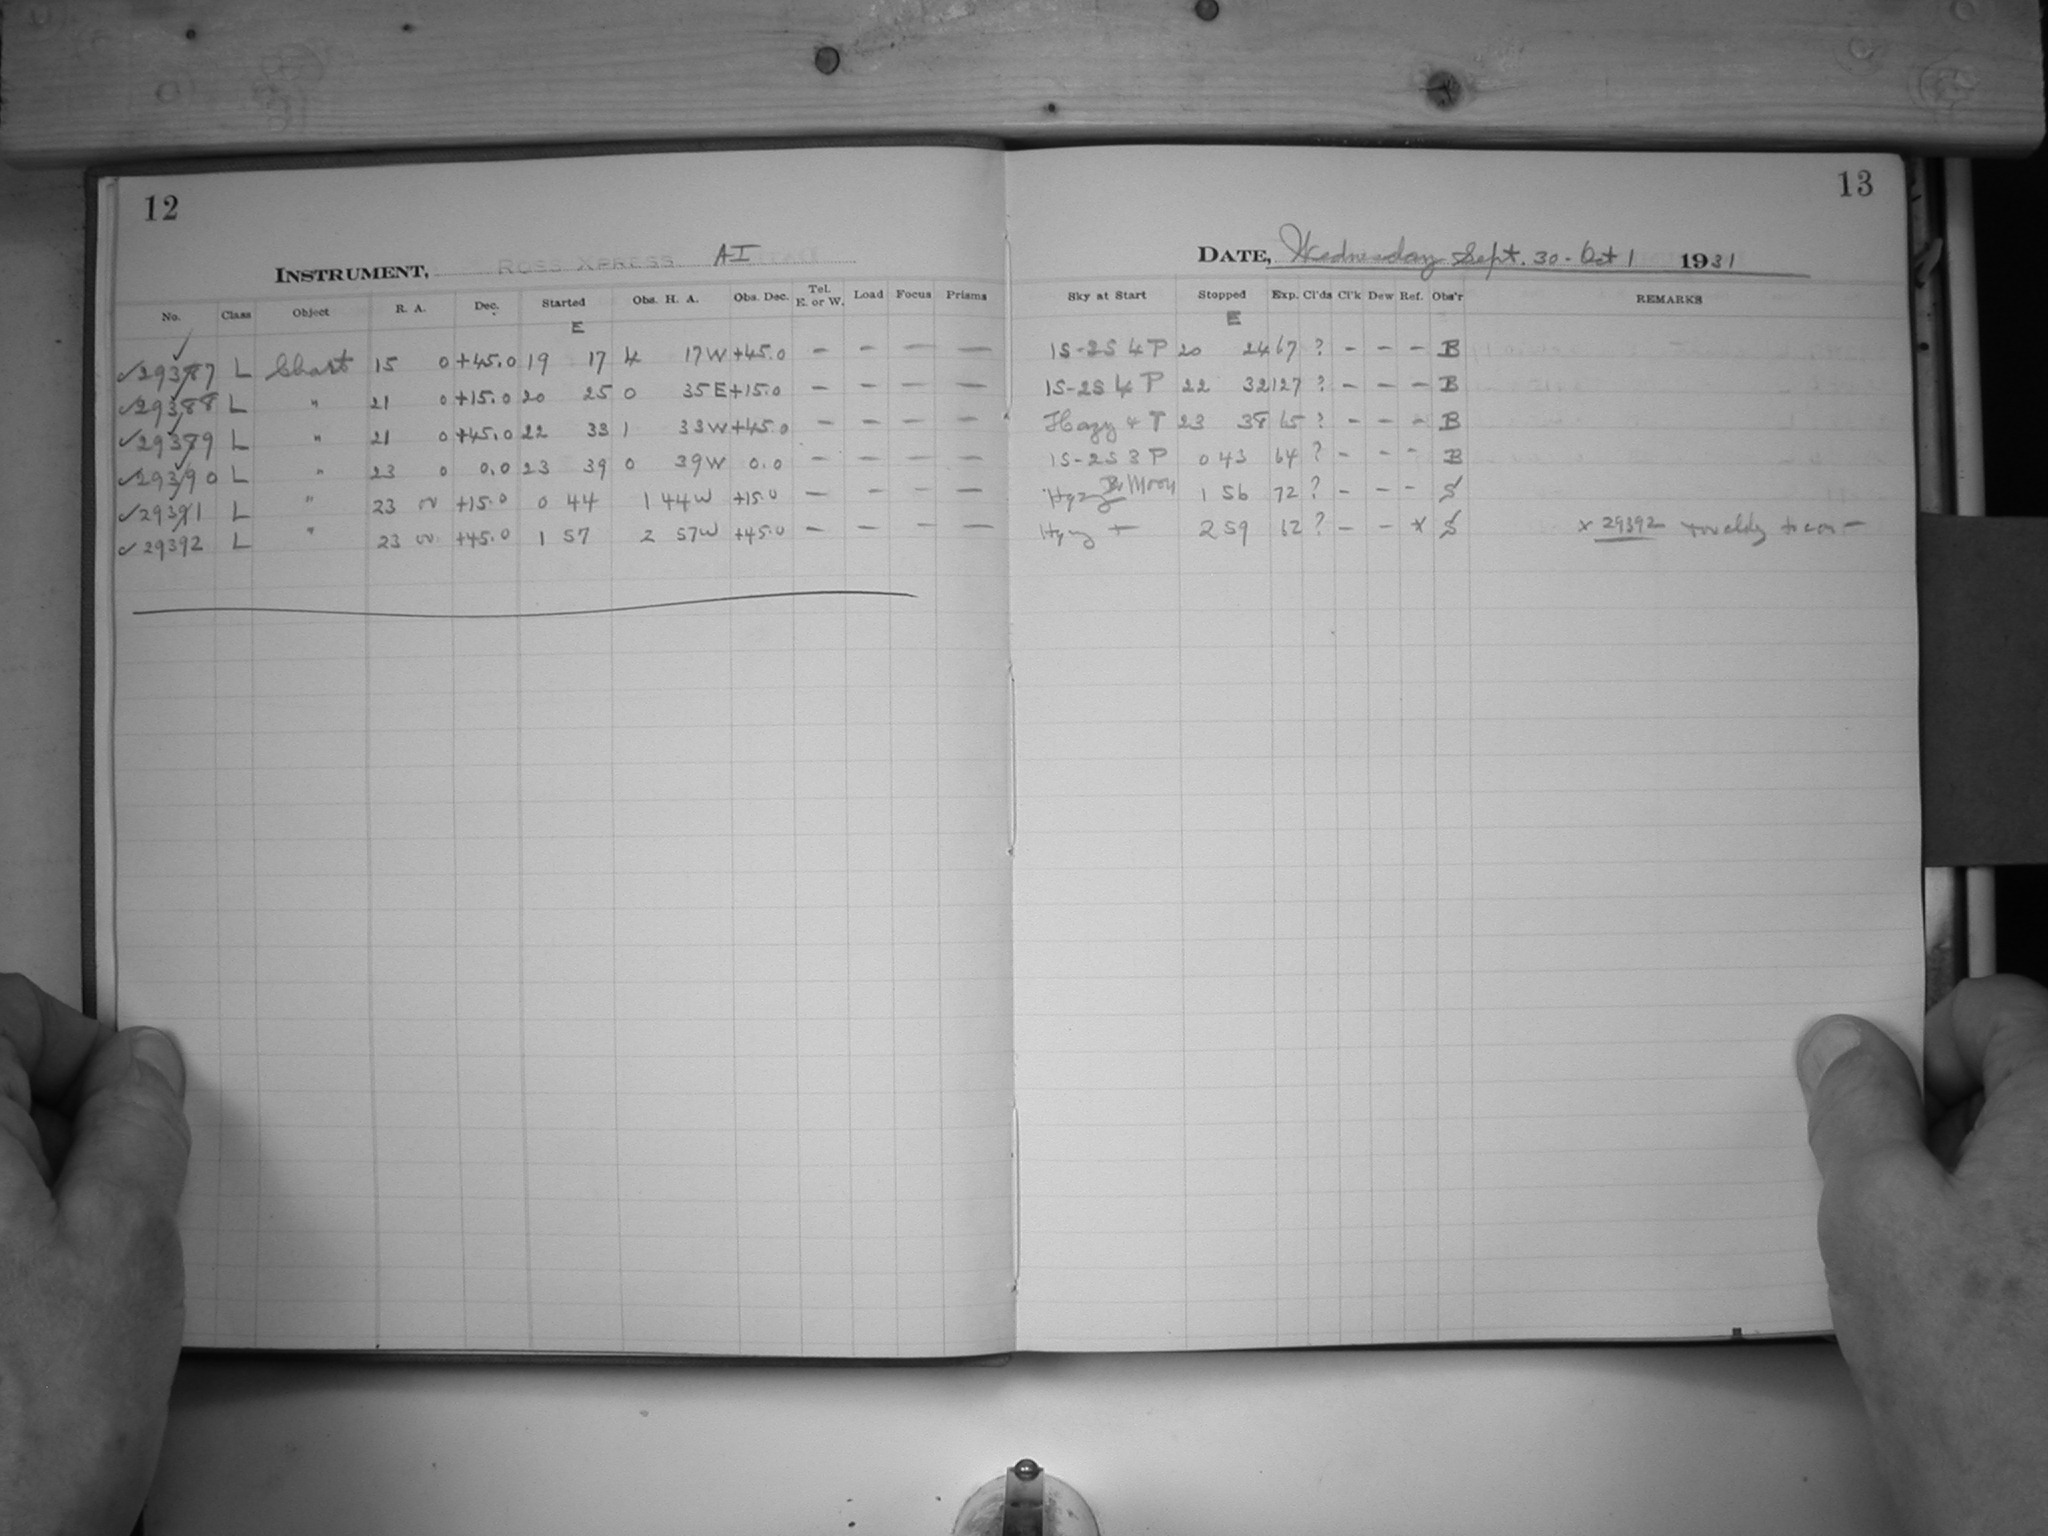 12
INSTRUMENT, ROSS XPRESS AI
No. Class Object R. A. Dec. Started Obs. H. A. Obs. Dec. Tel. E. or W. Load Focus Prisms
E
✓29387 L Chart 15 0 +45.0 19 17 4 17W +45.0 – – – –
✓29388 L " 21 0 +15.0 20 25 0 35E +15.0 – – – –
✓29389 L " 21 0 +45.0 22 33 1 33W +45.0 – – – –
✓29390 L " 23 0 0.0 23 39 0 39W 0.0 – – – –
✓29391 L " 23 00 +15.0 0 44 1 44W +15.0 – – – –
✓29392 L " 23 00 +45.0 1 57 2 57W +45.0 – – – –
13
DATE, Wednesday Sept. 30 - Oct 1 1931
Sky at Start Stopped Exp. Cl'ds Cl'k Dew Ref. Obs'r REMARKS
E
1S-2S 4 P 20 24 67 ? – – – B
1S-2S 4 P 22 32 127 ? – – – B
Hazy 4 P 23 38 65 ? – – – B
1S-2S 3 P 0 43 64 ? – – – B
Hazy Br Moon 1 56 72 ? – – – S
Hazy + 2 59 62 ? – – x S x 29392